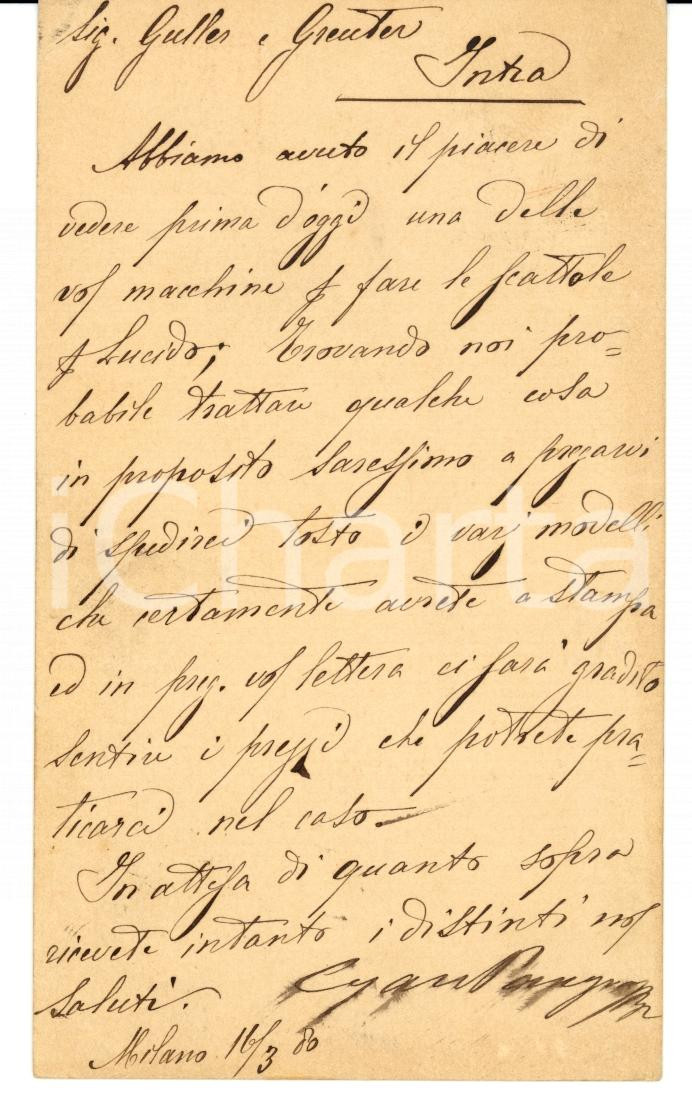 Sig. Guller e Greuter
Intra
Abbiamo avuto il piacere di
vedere prima d'oggi una delle
vos macchine p fare le scattole
p Lucido; Trovando noi pro=
babile trattare qualche cosa
in proposito saressimo a pregarvi
di spedirci tosto i varj modelli
che certamente avrete a stampa
ed in preg. vos lettera ci sarà gradito
sentire i prezzi che potrete pra=
ticarci nel caso.
In attesa di quanto sopra
ricevete intanto i distinti nos
saluti.
Milano 16/3 80
iCharta